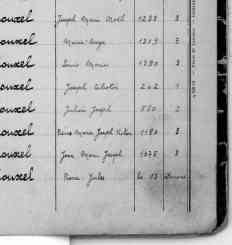 ouxel Joseph Marie Noël 1233 3
ouxel Marie Ange 1219 3
ouxel Louis Marie 1290 3
ouxel Joseph 202 1
ouxel Julien Joseph 550 2
ouxel Pierre Marie Joseph Victor 1180 3
ouxel Jean Marie Joseph 1075 3
ouxel Pierre Jules